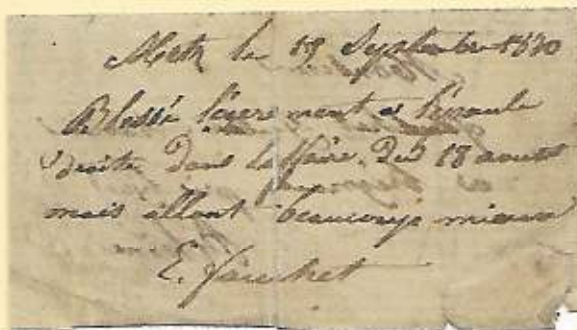 Metz le 19 Septembre 1870
Blessé légerement a l'épaule
droite dans laffaire du 18 aout
mais allant beaucoup mieux
E. Fauchet